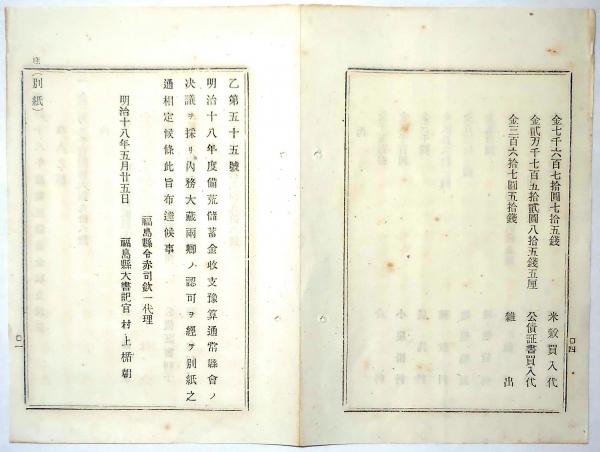 金七千六百七拾圓七拾五錢 米穀買入代
金貳万千七百五拾貳圓八拾五錢五厘 公債証書買入代
金三百六拾七圓五拾錢 雜出
〇四
乙第五十五號
明治十八年度備荒儲蓄金收支豫算通常縣會ノ
決議ヲ採リ內務大藏兩卿ノ認可ヲ經テ別紙之
通相定候條此旨布達候事
福島縣令赤司欽一代理
明治十八年五月廿五日 福島縣大書記官 村上楯朝
（別紙）
〇一